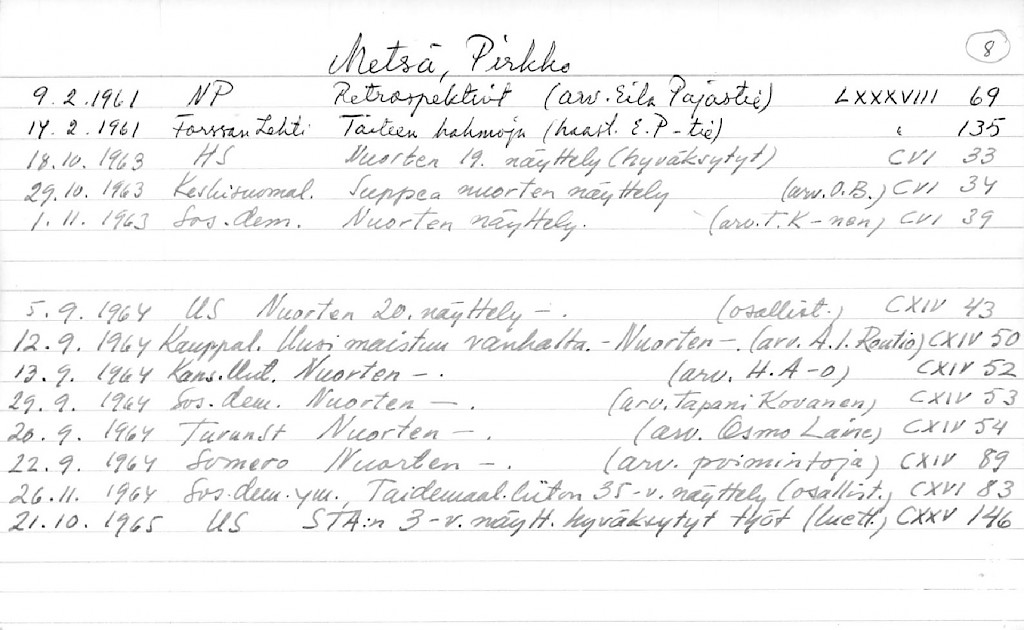 8
Metsä, Pirkko
9.2.1961 NP Retrospektiivit (arv. Eila Pajastie) LXXXVIII 69
14.2.1961 Forssan Lehti Taiteen hahmoja (haast. E.P-tie) " 135
18.10.1963 HS Nuorten 19. näyttely (hyväksytyt) CVI 33
29.10.1963 Keskisuomal. Suppea nuorten näyttely (arv. O.B.) CVI 34
1.11.1963 Sos.dem. Nuorten näyttely. (arv. T.K-nen) CVI 39
5.9.1964 US Nuorten 20. näyttely -. (osallist.) CXIV 43
12.9.1964 Kauppal. Uusi maistuu vanhalta. - Nuorten -. (arv. A.I. Routio) CXIV 50
13.9.1964 Kans.Uut. Nuorten -. (arv. H.A-o) CXIV 52
29.9.1964 Sos.dem. Nuorten -. (arv. Tapani Kovanen) CXIV 53
20.9.1964 TurunSt Nuorten -. (arv. Osmo Laine) CXIV 54
22.9.1964 Somero Nuorten -. (arv. poimintoja) CXIV 89
26.11.1964 Sos.dem. ym. Taidemaal.liiton 35-v. näyttely (osallist.) CXVI 83
21.10.1965 US STA:n 3-v. näytt. hyväksytyt työt (luett.) CXXV 146